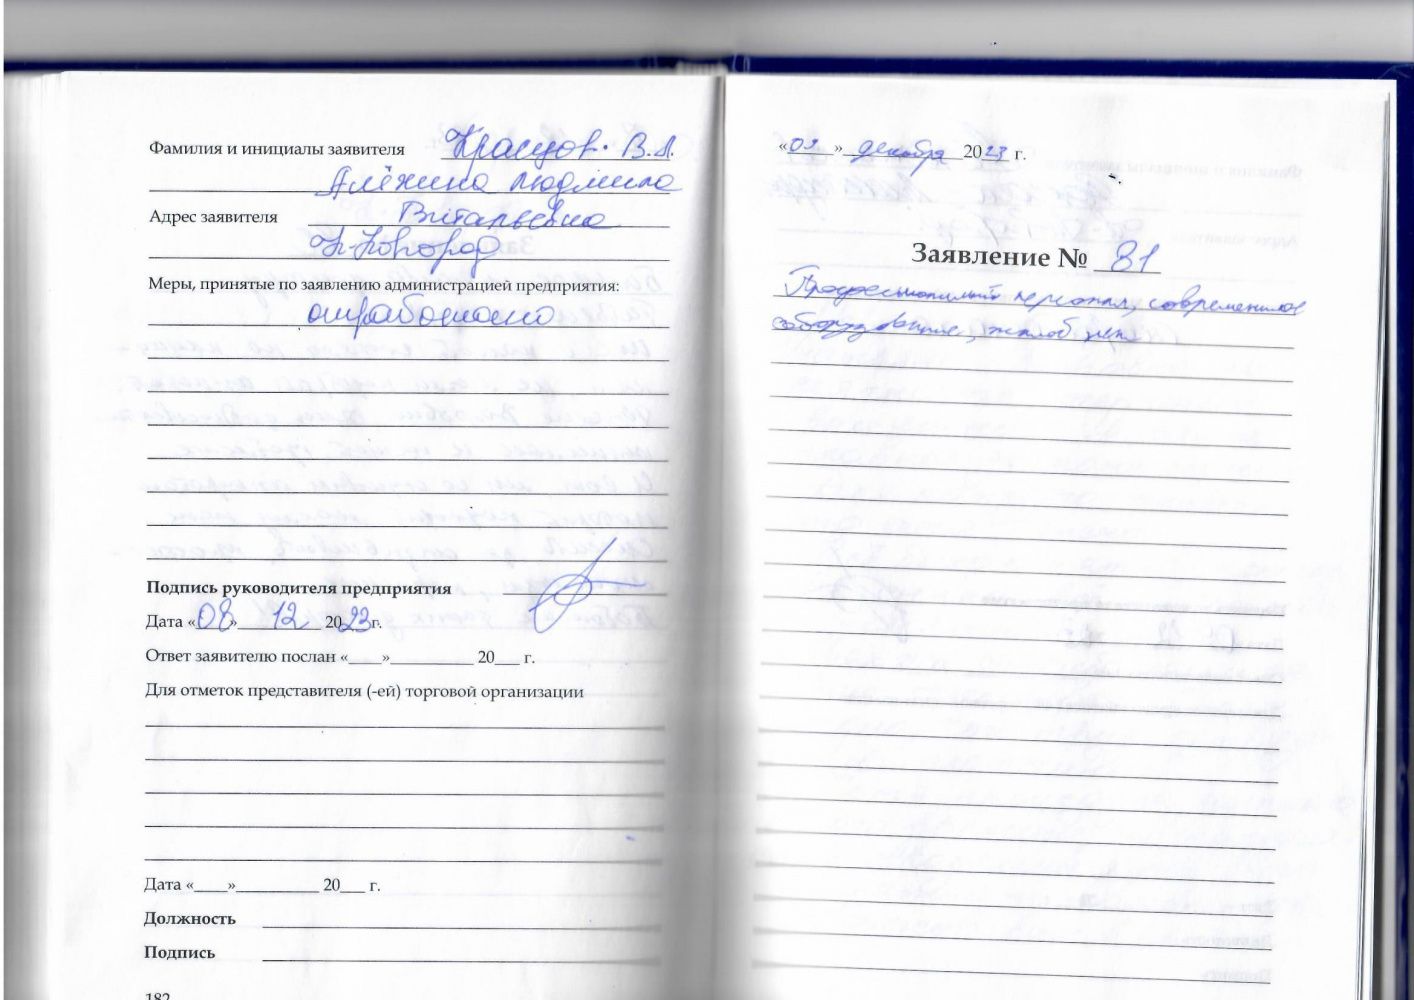 Фамилия и инициалы заявителя Красцов. В.А.
Алёхина Людмила
Адрес заявителя Витальевна
Н-Новгород
Меры, принятые по заявлению администрацией предприятия:
отработано
Подпись руководителя предприятия
Дата «08» 12 2023 г.
Ответ заявителю послан «___» __________ 20___ г.
Для отметок представителя (-ей) торговой организации
Дата «____» __________ 20___ г.
Должность
Подпись
182
«02» декабря 2023 г.
Заявление № 81
Профессиональный персонал, современное
оборудование, жалоб нет